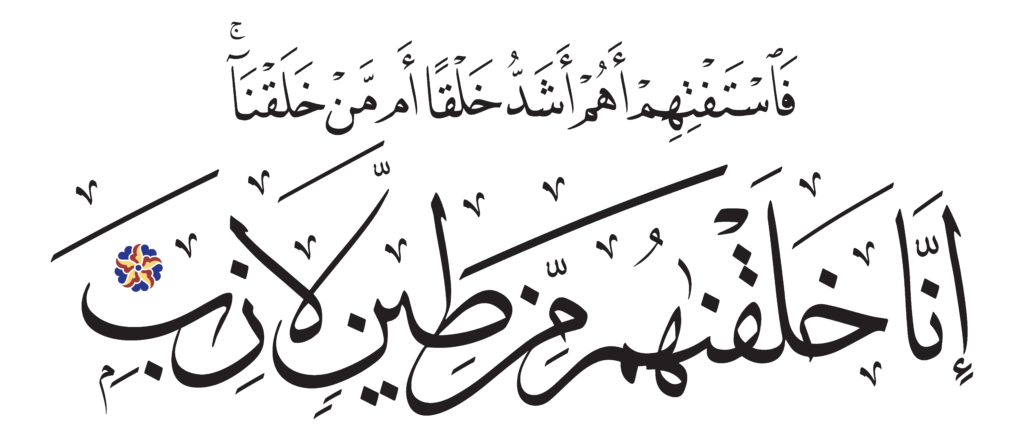 فَٱسْتَفْتِهِمْ أَهُمْ أَشَدُّ خَلْقًا أَم مَّنْ خَلَقْنَآ ۚ
إِنَّا خَلَقْنَٰهُم مِّن طِينٍ لَّازِبٍۭ